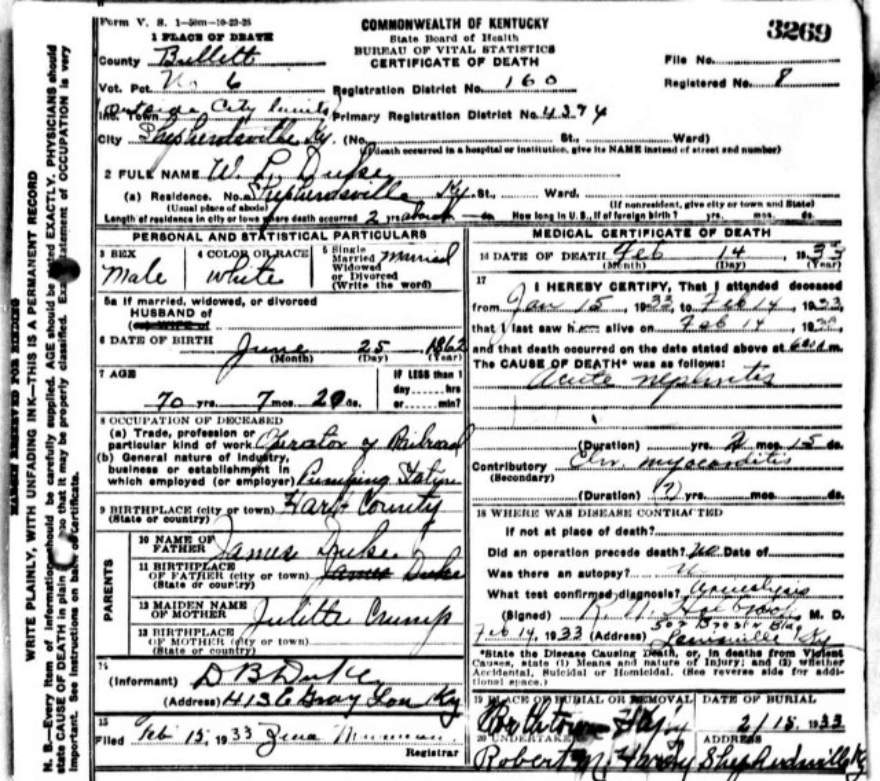 Form V. S. 1-50m-10-23-25
COMMONWEALTH OF KENTUCKY
State Board of Health
BUREAU OF VITAL STATISTICS
CERTIFICATE OF DEATH
3269
1 PLACE OF DEATH
County Bullitt
File No.
Vot. Pct. No 6 Registration District No. 160 Registered No. 8
Inc. Town Outside City Limits Primary Registration District No. 4374
City Shepherdsville Ky. (No. St., Ward)
(If death occurred in a hospital or institution, give its NAME instead of street and number)
2 FULL NAME W. L. Duke
(a) Residence. No. Shepherdsville Ky. St., Ward.
(Usual place of abode) (If nonresident, give city or town and State)
Length of residence in city or town where death occurred 2 yrs. mos. ds. How long in U. S., if of foreign birth? yrs. mos. ds.
PERSONAL AND STATISTICAL PARTICULARS
3 SEX Male
4 COLOR OR RACE White
5 Single Married Widowed or Divorced (Write the word) married
5a If married, widowed, or divorced
HUSBAND of
(or WIFE of
6 DATE OF BIRTH June 25 1862
(Month) (Day) (Year)
7 AGE
70 yrs. 7 mos. 20 ds.
IF LESS than 1
day......hrs
or......min?
8 OCCUPATION OF DECEASED
(a) Trade, profession or
particular kind of work Operator of Railroad
(b) General nature of Industry,
business or establishment in
which employed (or employer) Pumping Station
9 BIRTHPLACE (city or town) Hart County
(State or country)
PARENTS
10 NAME OF
FATHER James Duke
11 BIRTHPLACE
OF FATHER (city or town) James Duke
(State or country)
12 MAIDEN NAME
OF MOTHER Julitte Crump
13 BIRTHPLACE
OF MOTHER (city or town)
(State or country)
14
(Informant) D B Duke
(Address) 413 E Gray Lou Ky
15
Filed Feb 15, 1933 Zena
Registrar
MEDICAL CERTIFICATE OF DEATH
16 DATE OF DEATH Feb 14, 1933
(Month) (Day) (Year)
17
I HEREBY CERTIFY, That I attended deceased
from Jan 15, 1933, to Feb 14, 1933,
that I last saw h alive on Feb 14, 1933,
and that death occurred on the date stated above at m.
The CAUSE OF DEATH* was as follows:
Acute nephritis
(Duration) yrs. mos. 15 ds.
Contributory Chr. myocarditis
(Secondary)
(Duration) 2 yrs. mos. ds.
18 WHERE WAS DISEASE CONTRACTED
if not at place of death?
Did an operation precede death? no Date of
Was there an autopsy?
What test confirmed diagnosis?
(Signed) M. D.
Feb 14, 1933 (Address) Louisville Ky
*State the Disease Causing Death, or, in deaths from Violent
Causes, state (1) Means and nature of Injury; and (2) whether
Accidental, Suicidal or Homicidal. (See reverse side for addi-
tional space.)
19 PLACE OF BURIAL OR REMOVAL
DATE OF BURIAL
2/15 1933
20 UNDERTAKER
ADDRESS
Robert N. Hardy Shepherdsville Ky
MARGIN RESERVED FOR BINDING
WRITE PLAINLY, WITH UNFADING INK—THIS IS A PERMANENT RECORD
N. B.—Every item of information should be carefully supplied. AGE should be stated EXACTLY. PHYSICIANS should
state CAUSE OF DEATH in plain so that it may be properly classified. Exact statement of OCCUPATION is very
important. See instructions on back of Certificate.